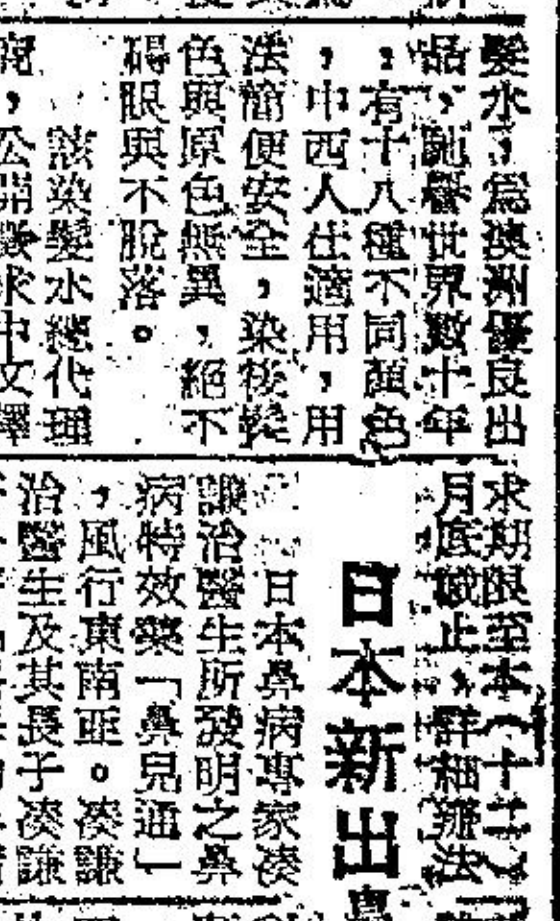 髮水，為澳洲優良出
品，馳譽世界數十年
，有十八種不同顏色
，中西人仕適用，用
法簡便安全，染後髮
色與原色無異，絕不
礙眼與不脫落。
該染髮水總代理
，公開徵求中文譯
求期限至本（十二）
月底截止，詳細辦法
日本新出
日本鼻病專家湊
謙治醫生所發明之鼻
病特效藥「鼻兒通」
，風行東南亞。湊謙
治醫生及其長子湊謙